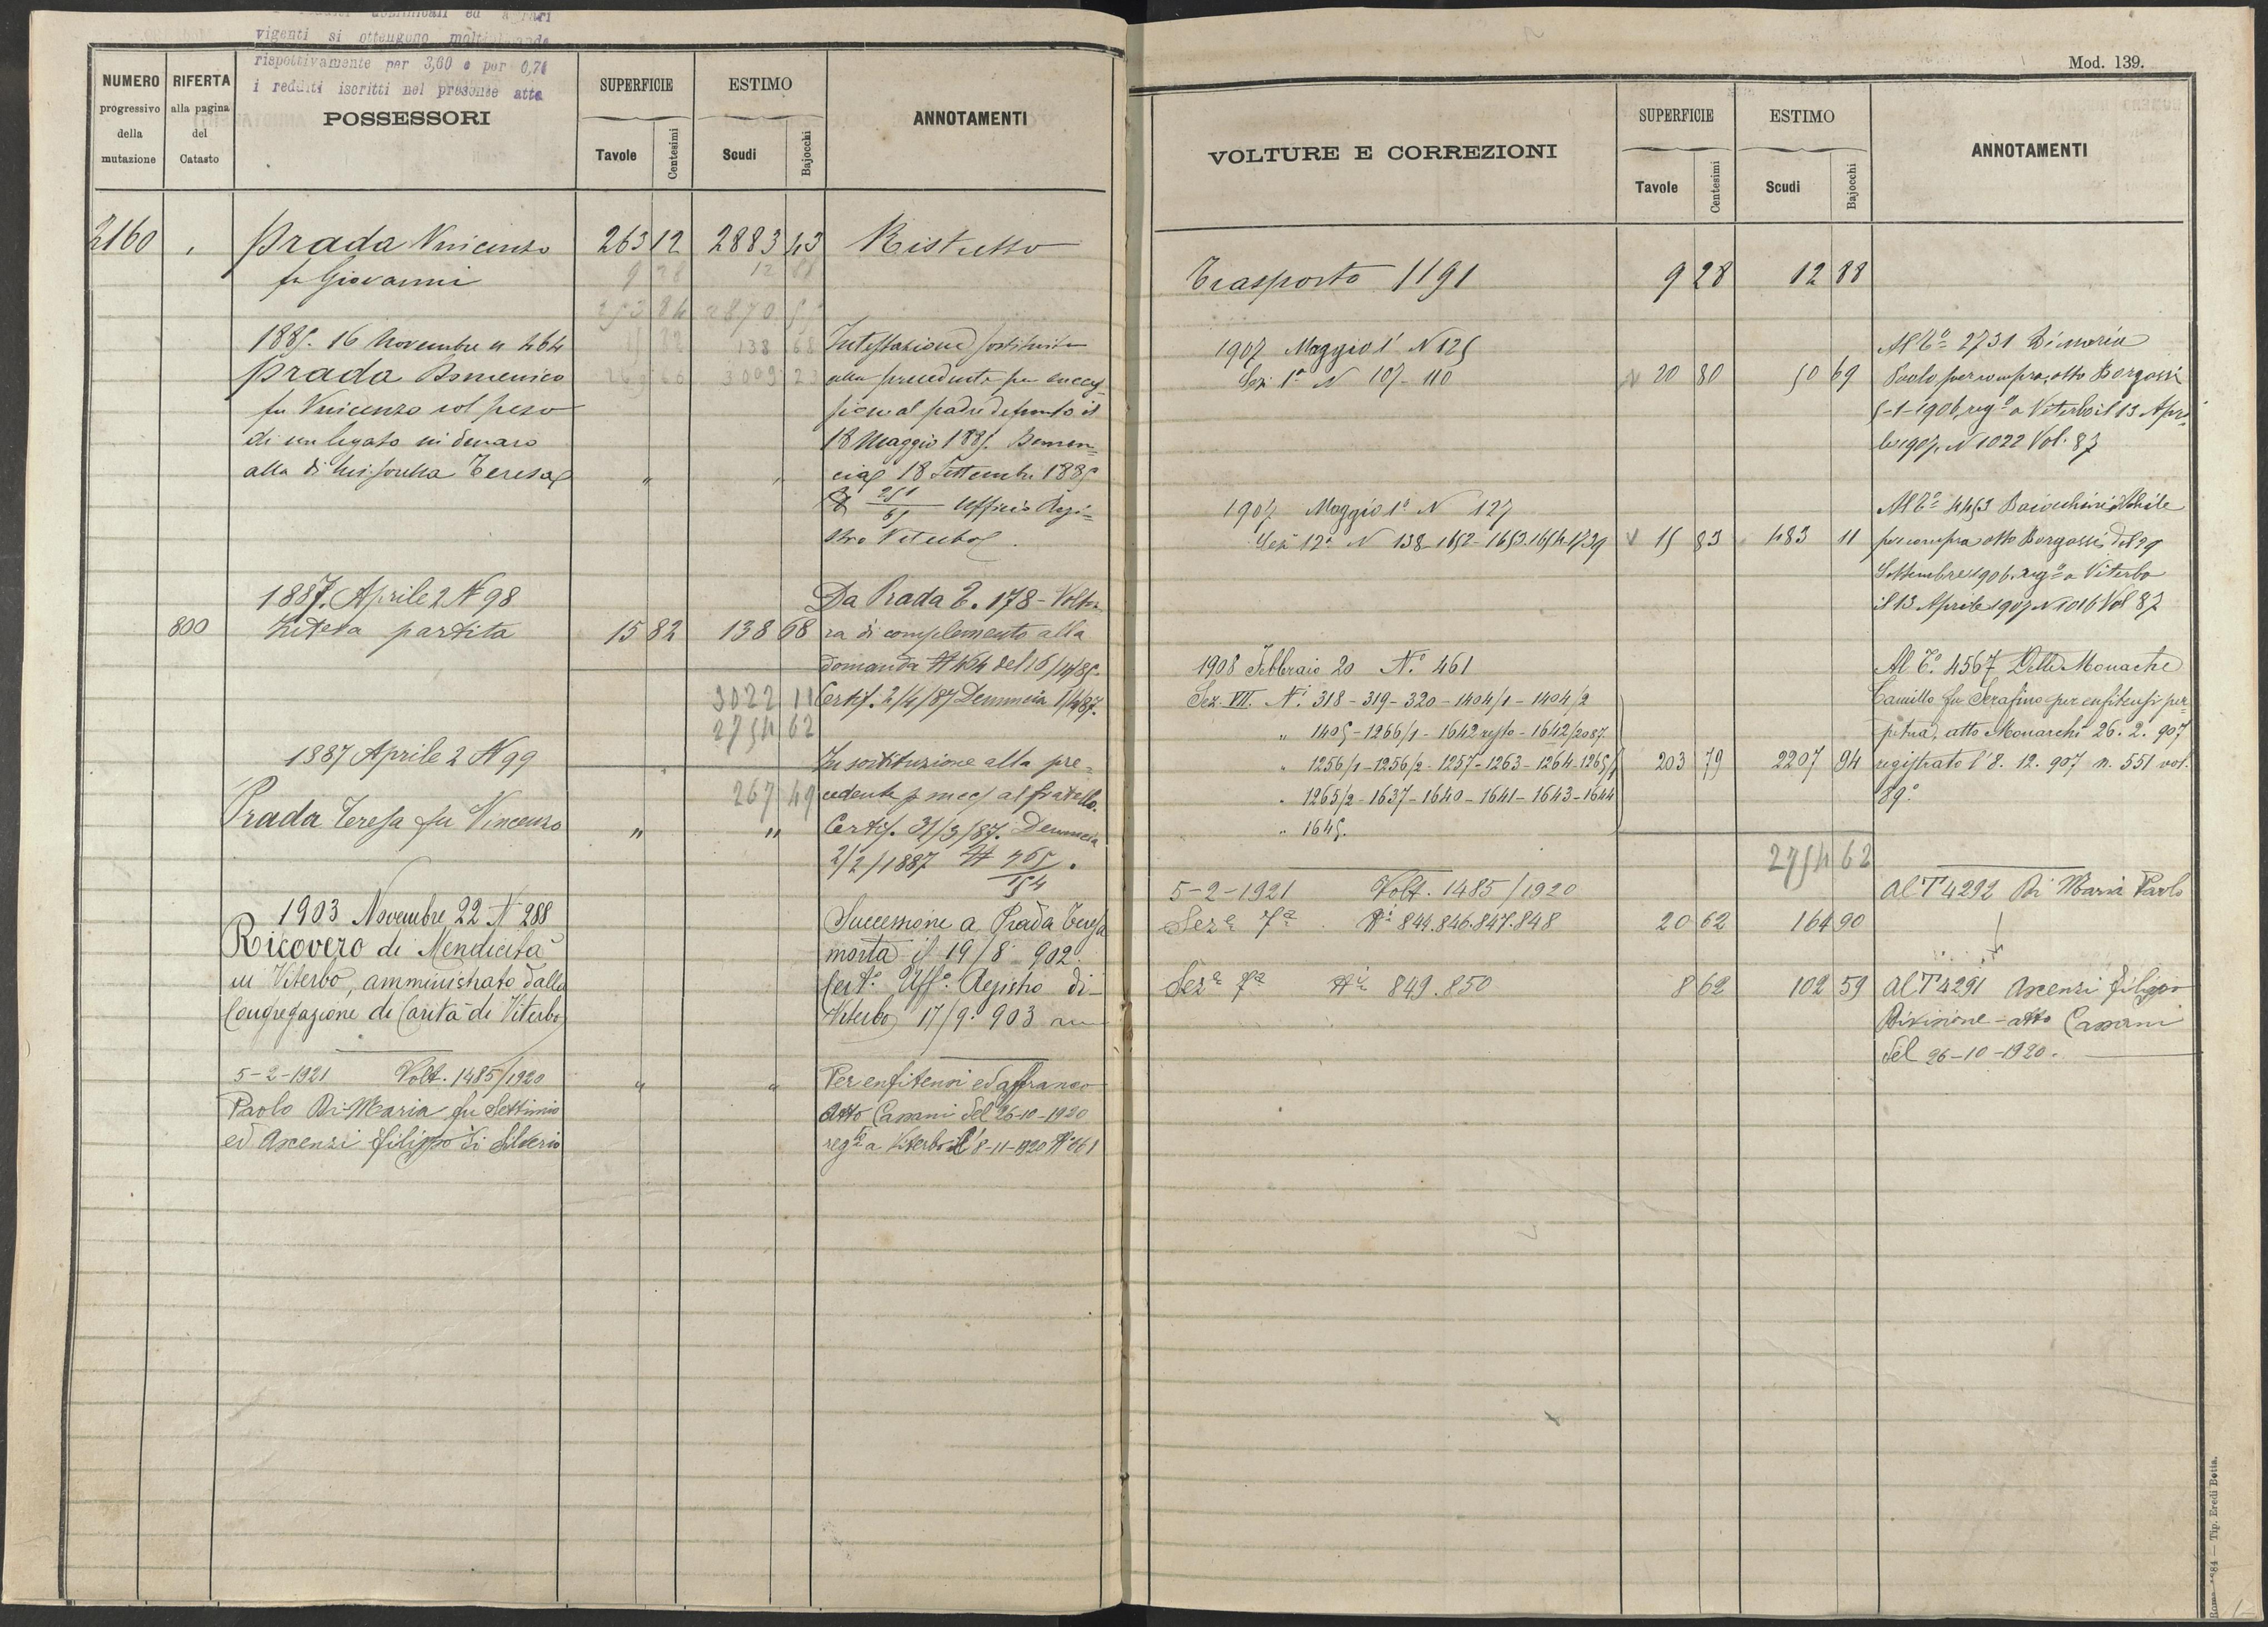 vigenti si ottengono
rispettivamente per 3,60 e per 0,71
i redditi iscritti nel presente atto
NUMERO progressivo della mutazione
RIFERTA alla pagina del Catasto
POSSESSORI
SUPERFICIE
Tavole
Centesimi
ESTIMO
Scudi
Bajocchi
ANNOTAMENTI
2160 Prada Vincenzo 263 12 2883 43 Ristretto
fu Giovanni 9 28 12 88
253 84 2870 55
1885. 16 Novembre n 464 15 82 138 68 Intestazione sostituita
Prada Domenico 269 66 3009 23 alla precedente per succes-
fu Vincenzo col peso sione al padre defunto il
di un legato in denaro 18 Maggio 1885. Denun-
alla di lui sorella Teresa " " cia 18 Settembre 1885
251/65 Ufficio Regi-
stro Viterbo.
1887. Aprile 2 N 98 Da Prada T. 178 - Voltu-
800 Intera partita 15 82 138 68 ra di complemento alla
domanda N 464 del 16/11/85.
3022 11 Certif. 2/4/87 Denuncia 1/4/87.
2754 62
1887 Aprile 2 N 99 In sostituzione alla pre-
267 49 cedente p succ al fratello.
Prada Teresa fu Vincenzo " " Certif. 31/3/87. Denuncia
2/2/1887 N 765/154.
1903 Novembre 22 N 288 Successione a Prada Teresa
Ricovero di Mendicità morta il 19/8 902.
in Viterbo, amministrato dalla Cert.o Uff.o Registro di
Congregazione di Carità di Viterbo Viterbo 17/9 903
5-2-1921 Volt. 1485/1920 " " Per enfiteusi ed affranco
Paolo Di Maria fu Settimio Atto Cassani del 26-10-1920
ed Ascenzi Filippo di Silverio reg.to a Viterbo il 8-11-1920 N 661
Mod. 139.
VOLTURE E CORREZIONI
SUPERFICIE
Tavole
Centesimi
ESTIMO
Scudi
Bajocchi
ANNOTAMENTI
Trasporto 1191 9 28 12 88
1907 Maggio 1° N 125 Al T.o 2731 Di Maria
Sez. 1a N 107-110 20 80 50 69 Paolo per compra, atto Borgassi
5-1-1906, reg.o a Viterbo il 13 Apri-
le 1907, N 1022 Vol. 87
1907 Maggio 1° N 127 Al T.o 4453
Sez. 12a N 138-1652-1653-1654 15 83 483 11 per compra atto Borgassi del 29
Settembre 1906. reg.o a Viterbo
il 13 Aprile 1907 N 1016 Vol 87
1908 Febbraio 20 N.o 461 Al T.o 4567 Delle Monache
Sez. VII. Ni 318-319-320-1404/1-1404/2 Camillo fu Serafino per enfiteusi per-
" 1405-1266/1-1642 resto-1642/2087 petua, atto Monarchi 26.2.907
" 1256/1-1256/2-1257-1263-1264-1265/1 203 79 2207 94 registrato l'8.12.907 n. 551 vol.
" 1265/2-1637-1640-1641-1643-1644 89.o
" 1645.
2754 62
5-2-1921 Volt. 1485/1920 Al T 4292 Di Maria Paolo
Sez.e 7a Ni 844.846.847.848 20 62 164 90
Sez.e 7a Ni 849.850 8 62 102 59 Al T 4291 Ascenzi Filippo
Divisione - atto Cassani
del 26-10-1920.
Tip. Eredi Botta.